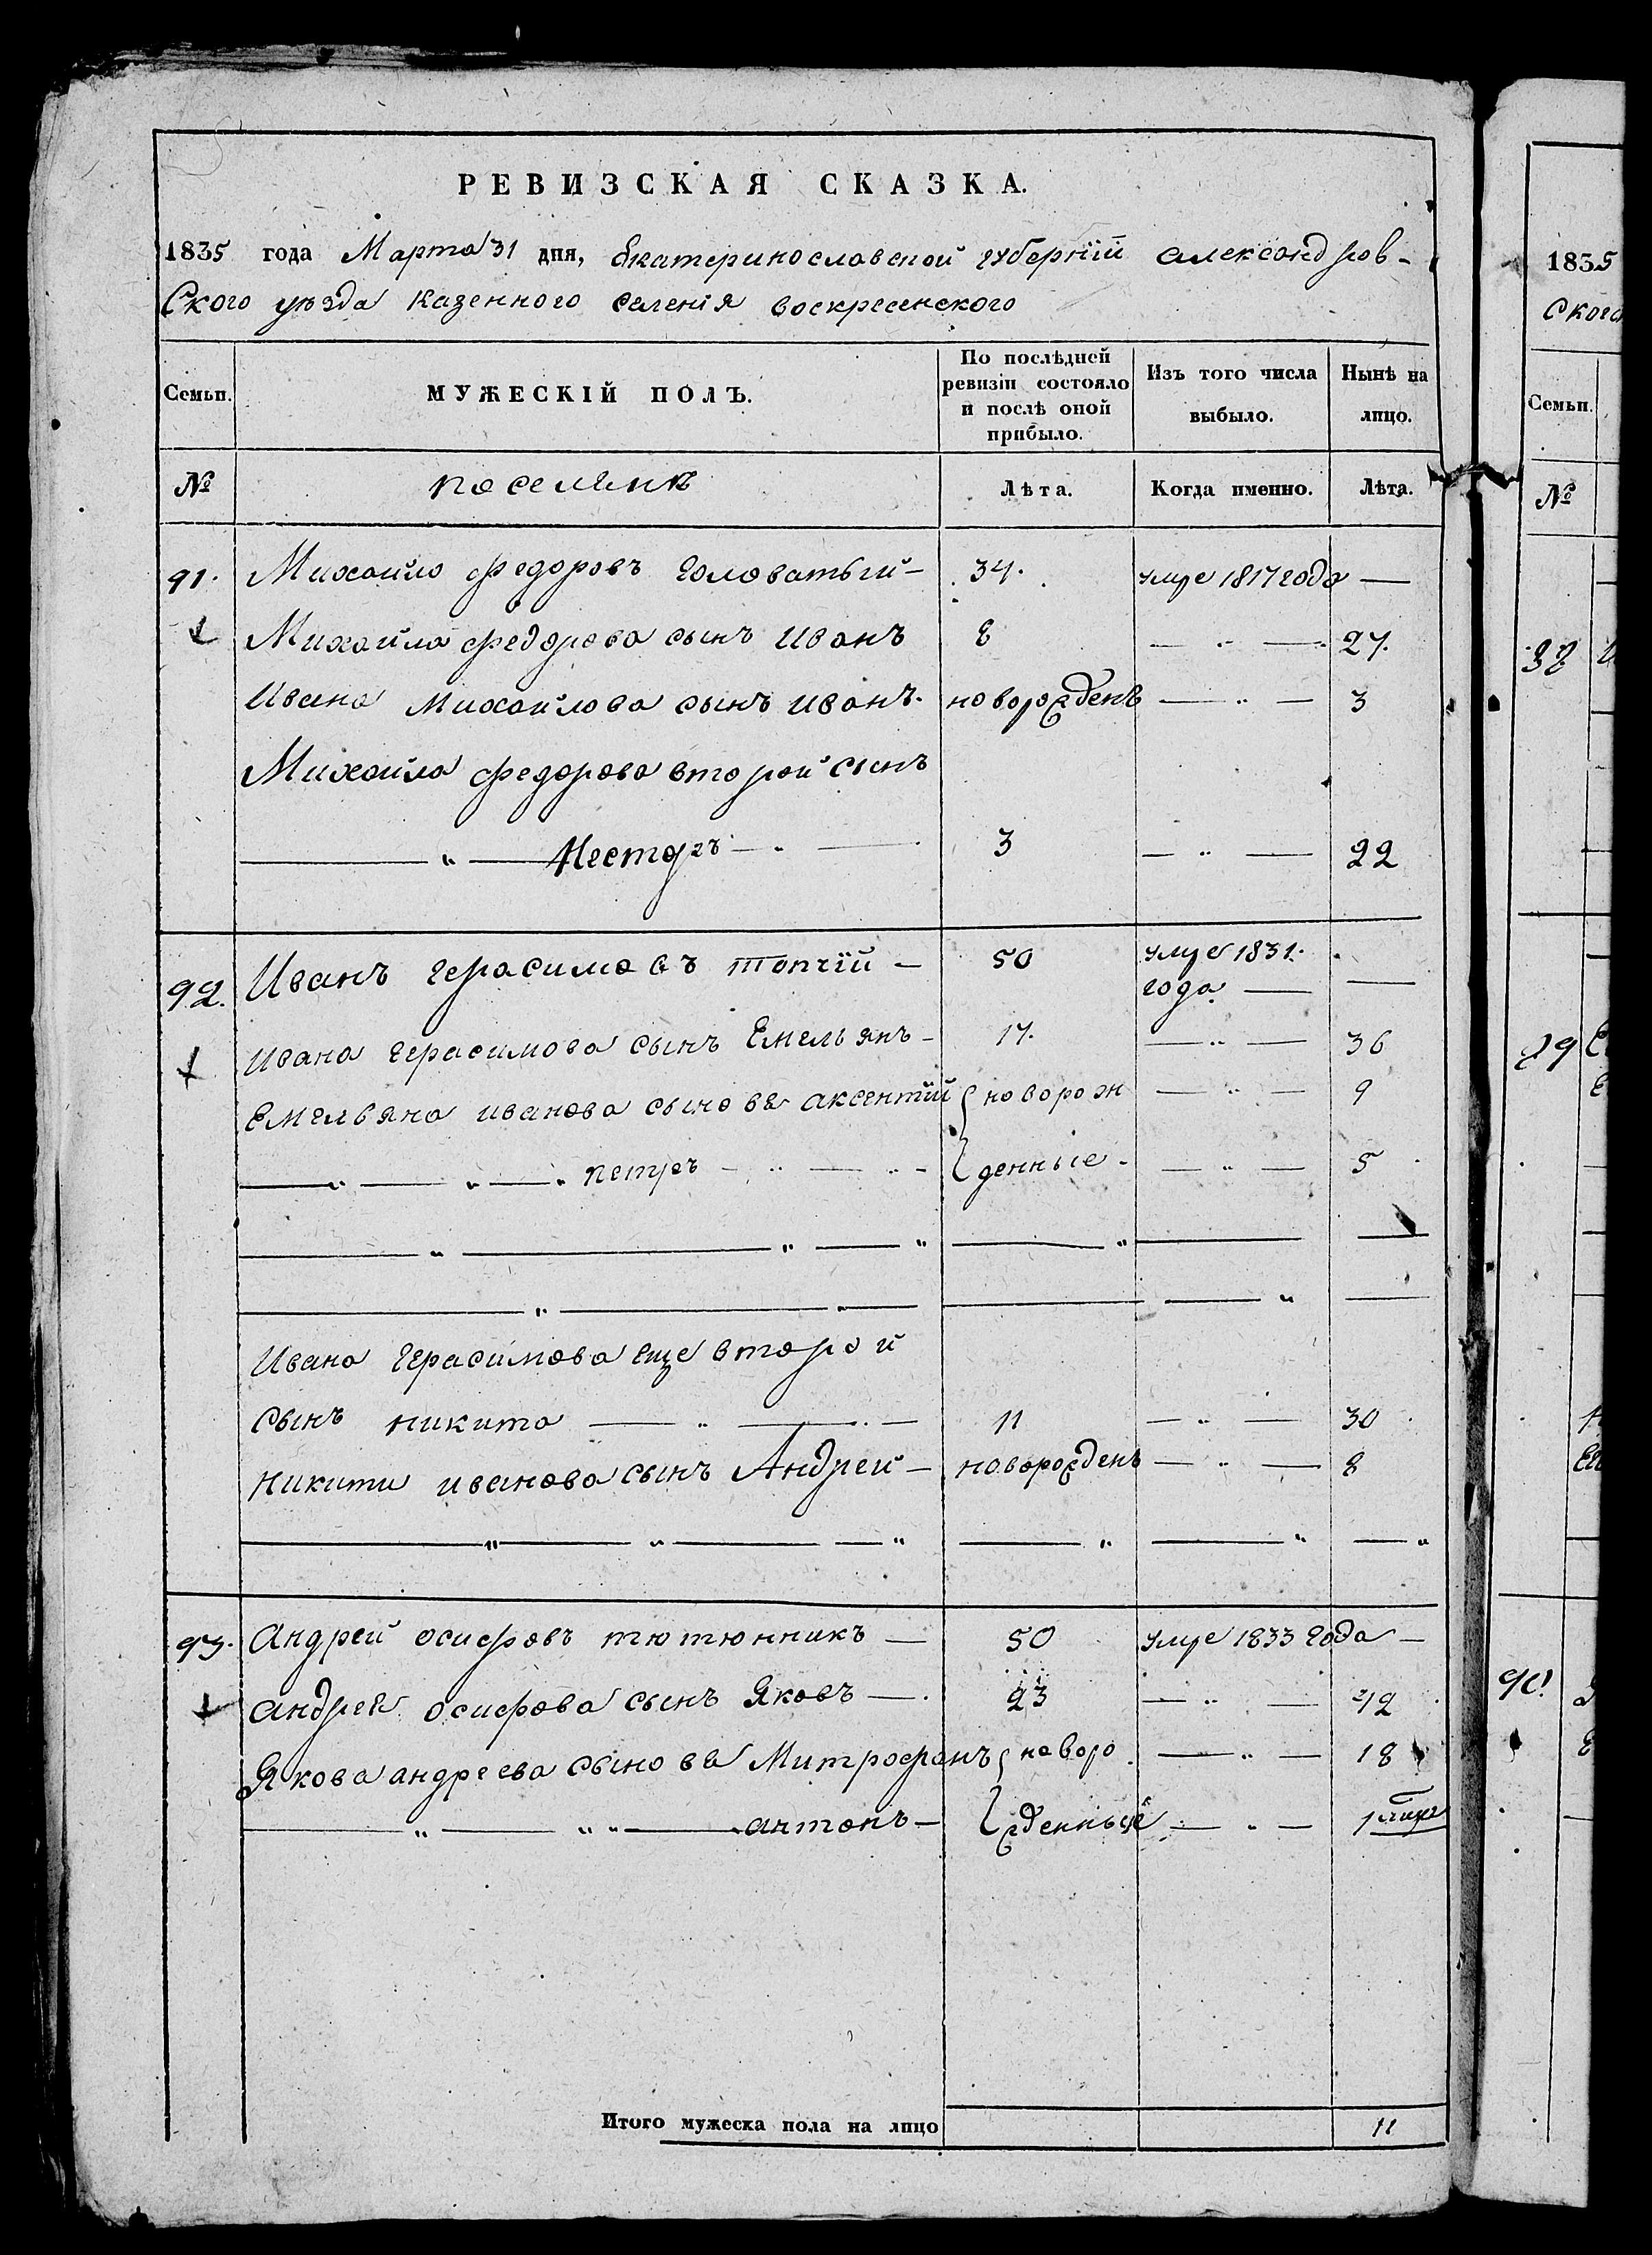 РЕВИЗСКАЯ СКАЗКА.
1835 года Марта 31 дня, Екатеринославской губерніи александров-
Ского уѣзда казенного селенія воскресенского
Семьи. МУЖЕСКІЙ ПОЛЪ. По послѣдней ревизіи состояло и послѣ оной прибыло. Изъ того числа выбыло. Нынѣ на лицо.
№ поселянъ Лѣта. Когда именно. Лѣта.
91. Михайло федоровъ головатый — 34. умре 1817 года —
Михайла федорова сынъ иванъ 8 — " — 27.
Ивана михайлова сынъ иванъ. новорожденъ — " — 3
Михайла федорова второй сынъ
— " — Нестеръ — " — 3 — " — 22
92. Иванъ герасимовъ топчій — 50 умре 1831. года — —
ивана герасимова сынъ Емельянъ — 17. — " — 36
Емельяна иванова сыновья аксентій { новорож — " — 9
— " — " — " петръ — " — " — { денные — — " — 5
— " — " — " — " — —
— " — " — — — " —
ивана герасимова еще второй
сынъ никита — " — 11 — " — 30
никиты иванова сынъ Андрей — новорожденъ — " — 8
— " — " — — " — " — " — "
93. андрей осифовъ тютюнникъ — 50 умре 1833 года —
андрея осифова сынъ Яковъ — 23 — " — 42
Якова андреева сыновья Митрофанъ { новоро — " — 18
— " — " " — антонъ — { жденные — " — 1
Итого мужеска пола на лицо 11
1835
ского
Семьи.
№
89
90